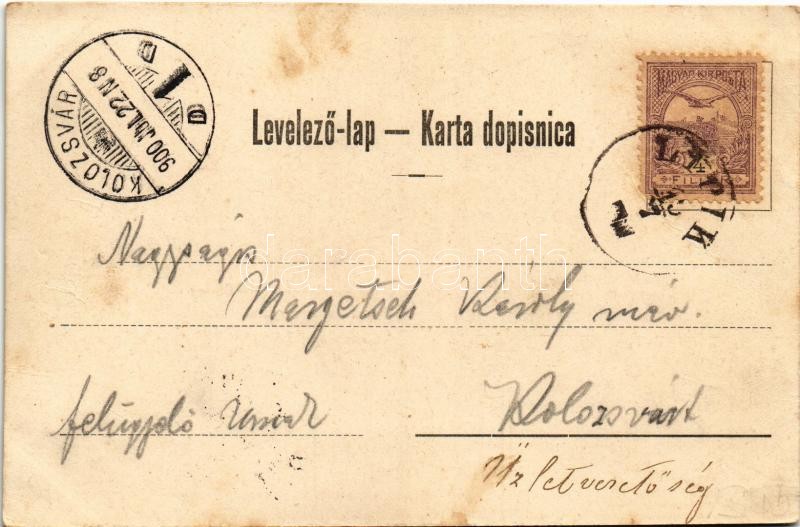 KOLOZSVÁR
900 JUL. 22 N 8
D 1 D
MAGYAR KIR. POSTA
LIPIK
Levelező-lap — Karta dopisnica
darabanth
Nagyságos
Margetsch Károly
felügyelő úrnak Kolozsvárt
Üzletvezetőség